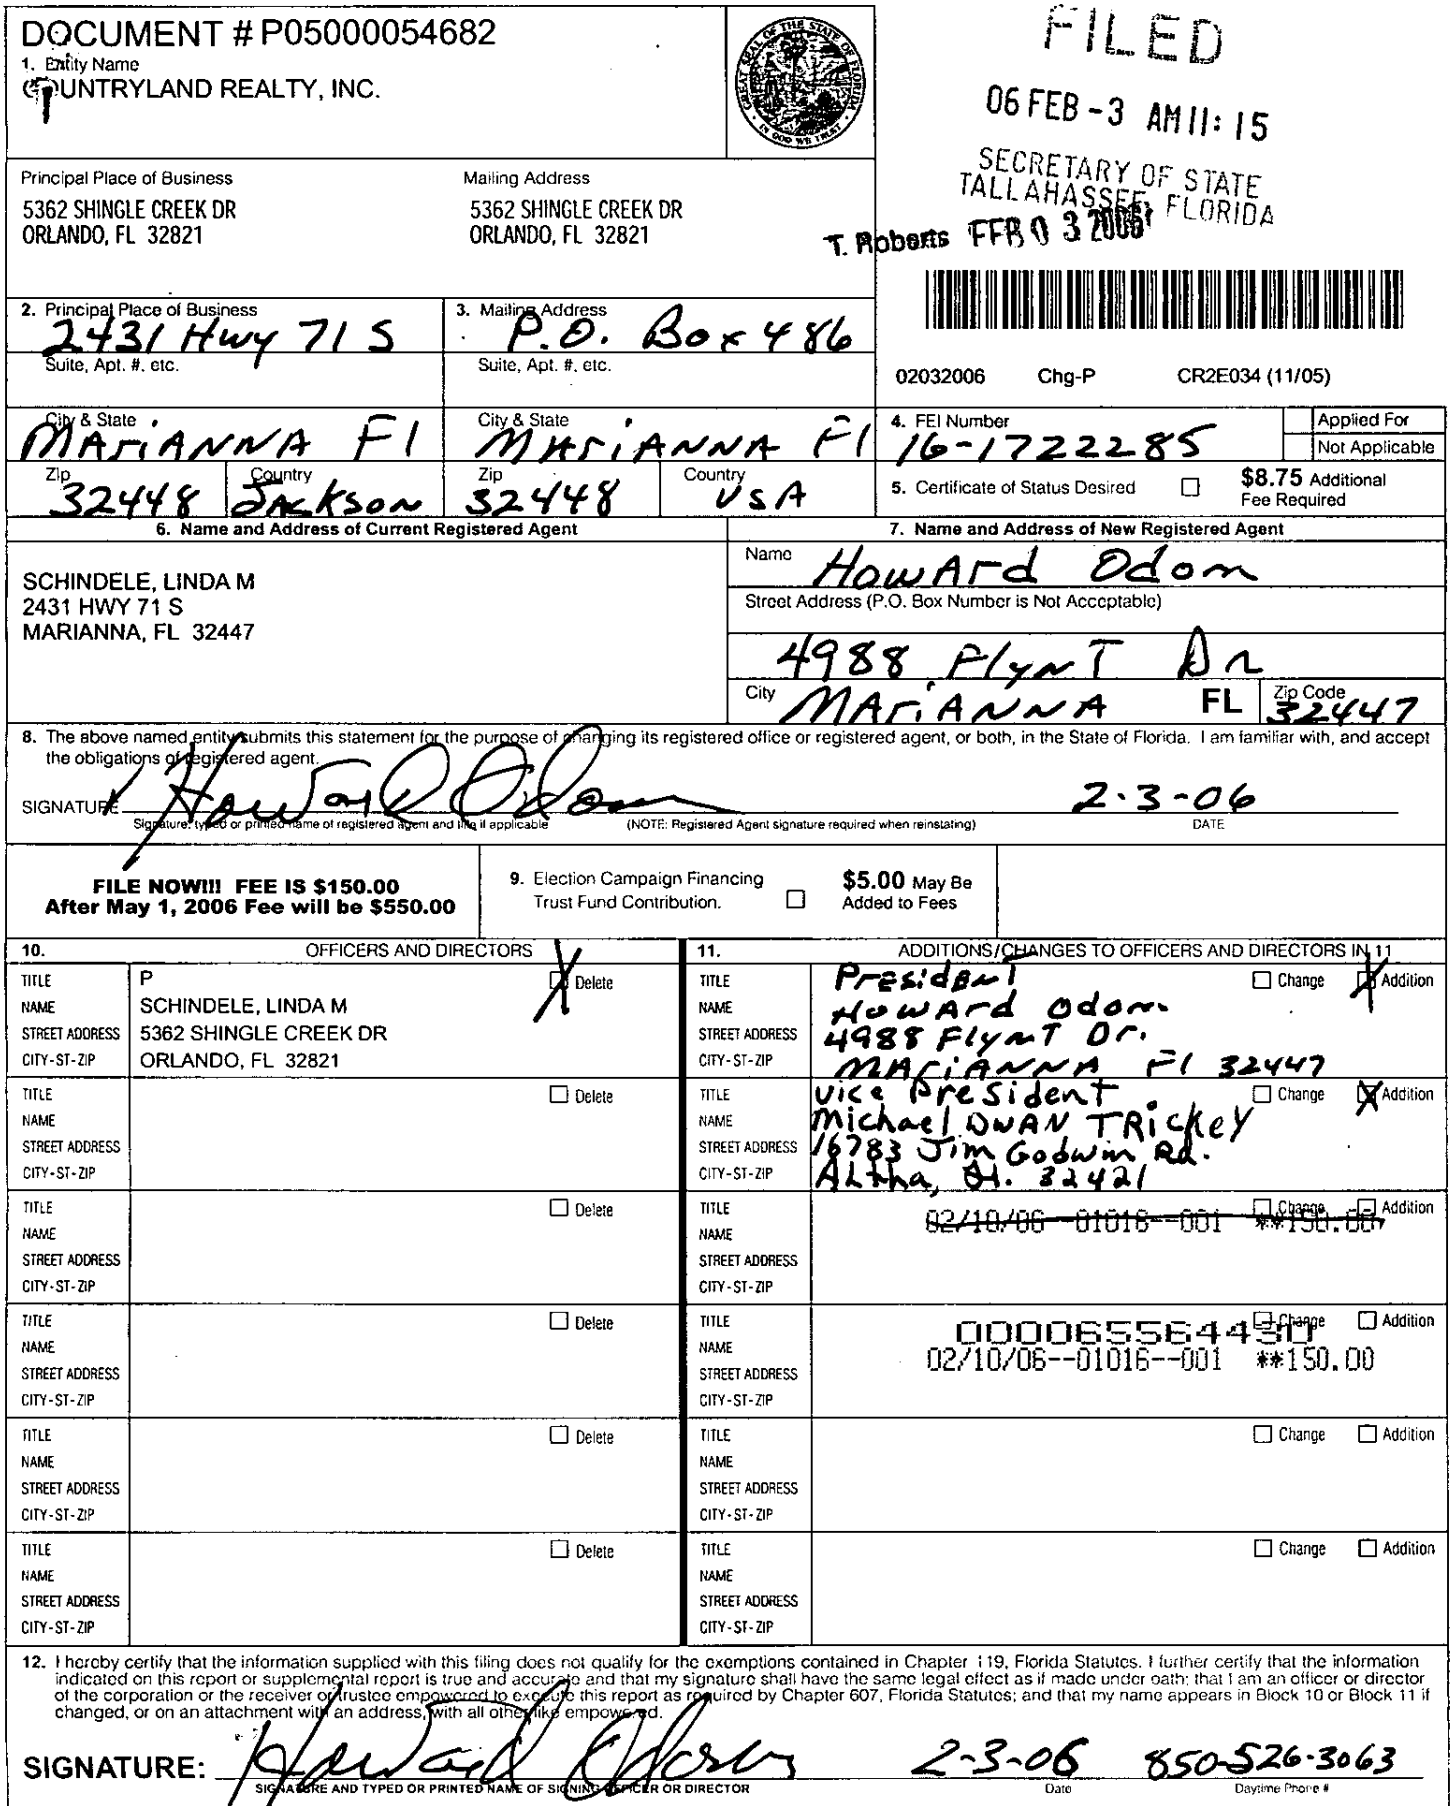 DOCUMENT # P05000054682
1. Entity Name
COUNTRYLAND REALTY, INC.
GREAT SEAL OF THE STATE OF FLORIDA
IN GOD WE TRUST
FILED
06 FEB -3 AM 11: 15
SECRETARY OF STATE
TALLAHASSEE, FLORIDA
T. Roberts FEB 0 3 2006
Principal Place of Business
5362 SHINGLE CREEK DR
ORLANDO, FL 32821
Mailing Address
5362 SHINGLE CREEK DR
ORLANDO, FL 32821
2. Principal Place of Business
2431 Hwy 71 S
Suite, Apt. #, etc.
City & State
MAriANNA Fl
Zip
32448
Country
JACKSON
3. Mailing Address
P.O. Box 486
Suite, Apt. #, etc.
City & State
MAriANNA Fl
Zip
32448
Country
USA
02032006 Chg-P CR2E034 (11/05)
4. FEI Number
16-1722285
Applied For
Not Applicable
5. Certificate of Status Desired
$8.75 Additional
Fee Required
6. Name and Address of Current Registered Agent
SCHINDELE, LINDA M
2431 HWY 71 S
MARIANNA, FL 32447
7. Name and Address of New Registered Agent
Name
HowArd Odom
Street Address (P.O. Box Number is Not Acceptable)
4988 FlynT Dr
City
MAriANNA FL
Zip Code
32447
8. The above named entity submits this statement for the purpose of changing its registered office or registered agent, or both, in the State of Florida. I am familiar with, and accept
the obligations of registered agent.
SIGNATURE Howard Odom 2-3-06
Signature, typed or printed name of registered agent and title if applicable (NOTE: Registered Agent signature required when reinstating) DATE
FILE NOW!!! FEE IS $150.00
After May 1, 2006 Fee will be $550.00
9. Election Campaign Financing
Trust Fund Contribution.
$5.00 May Be
Added to Fees
10. OFFICERS AND DIRECTORS
TITLE P Delete
NAME SCHINDELE, LINDA M
STREET ADDRESS 5362 SHINGLE CREEK DR
CITY-ST-ZIP ORLANDO, FL 32821
TITLE Delete
NAME
STREET ADDRESS
CITY-ST-ZIP
TITLE Delete
NAME
STREET ADDRESS
CITY-ST-ZIP
TITLE Delete
NAME
STREET ADDRESS
CITY-ST-ZIP
TITLE Delete
NAME
STREET ADDRESS
CITY-ST-ZIP
TITLE Delete
NAME
STREET ADDRESS
CITY-ST-ZIP
11. ADDITIONS/CHANGES TO OFFICERS AND DIRECTORS IN 11
TITLE PresidenT Change Addition
NAME HowArd Odom
STREET ADDRESS 4988 FlynT Dr.
CITY-ST-ZIP MAriANNA Fl 32447
TITLE Vice President Change Addition
NAME Michael DWAN TRickey
STREET ADDRESS 16783 Jim Godwin Rd.
CITY-ST-ZIP Altha, Fl. 32421
TITLE 02/10/06--01016--001 **150.00 Change Addition
NAME
STREET ADDRESS
CITY-ST-ZIP
TITLE 000065564430 Change Addition
NAME 02/10/06--01016--001 **150.00
STREET ADDRESS
CITY-ST-ZIP
TITLE Change Addition
NAME
STREET ADDRESS
CITY-ST-ZIP
TITLE Change Addition
NAME
STREET ADDRESS
CITY-ST-ZIP
12. I hereby certify that the information supplied with this filing does not qualify for the exemptions contained in Chapter 119, Florida Statutes. I further certify that the information
indicated on this report or supplemental report is true and accurate and that my signature shall have the same legal effect as if made under oath; that I am an officer or director
of the corporation or the receiver or trustee empowered to execute this report as required by Chapter 607, Florida Statutes; and that my name appears in Block 10 or Block 11 if
changed, or on an attachment with an address, with all other like empowered.
SIGNATURE: Howard Odom 2-3-06 850-526-3063
SIGNATURE AND TYPED OR PRINTED NAME OF SIGNING OFFICER OR DIRECTOR Date Daytime Phone #